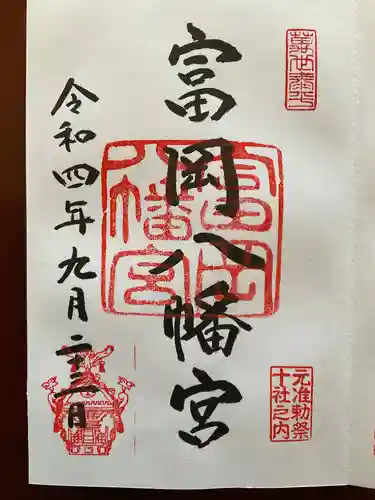 富岡八幡宮
令和四年九月二十三日
富岡
八幡宮
元准勅祭
十社之内